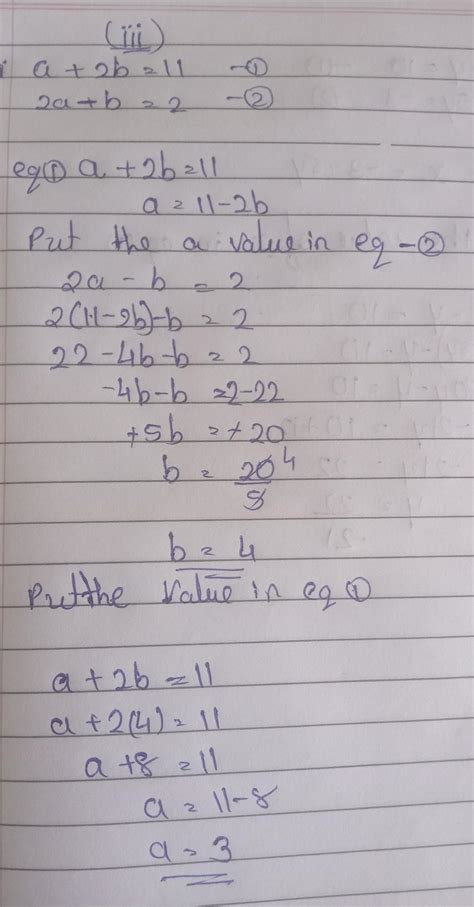 (iii)
a + 2b = 11 -①
2a + b = 2 -②
eq① a + 2b = 11
a = 11 - 2b
Put the a value in eq -②
2a - b = 2
2(11-2b)-b = 2
22 - 4b - b = 2
-4b - b = 2-22
+5b = +20
b = 20 4
5
b = 4
Put the value in eq ①
a + 2b = 11
a + 2(4) = 11
a + 8 = 11
a = 11-8
a = 3